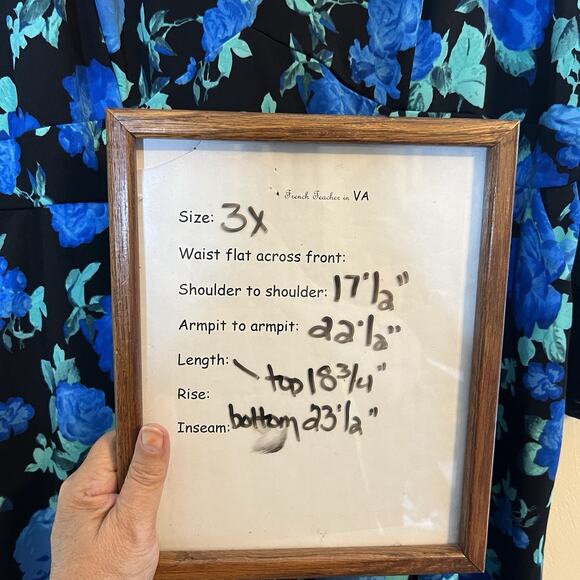 French Teacher in VA
Size: 3X
Waist flat across front:
Shoulder to shoulder: 17 1/2"
Armpit to armpit: 22 1/2"
Length: \ top 18 3/4"
Rise:
Inseam: bottom 23 1/2"